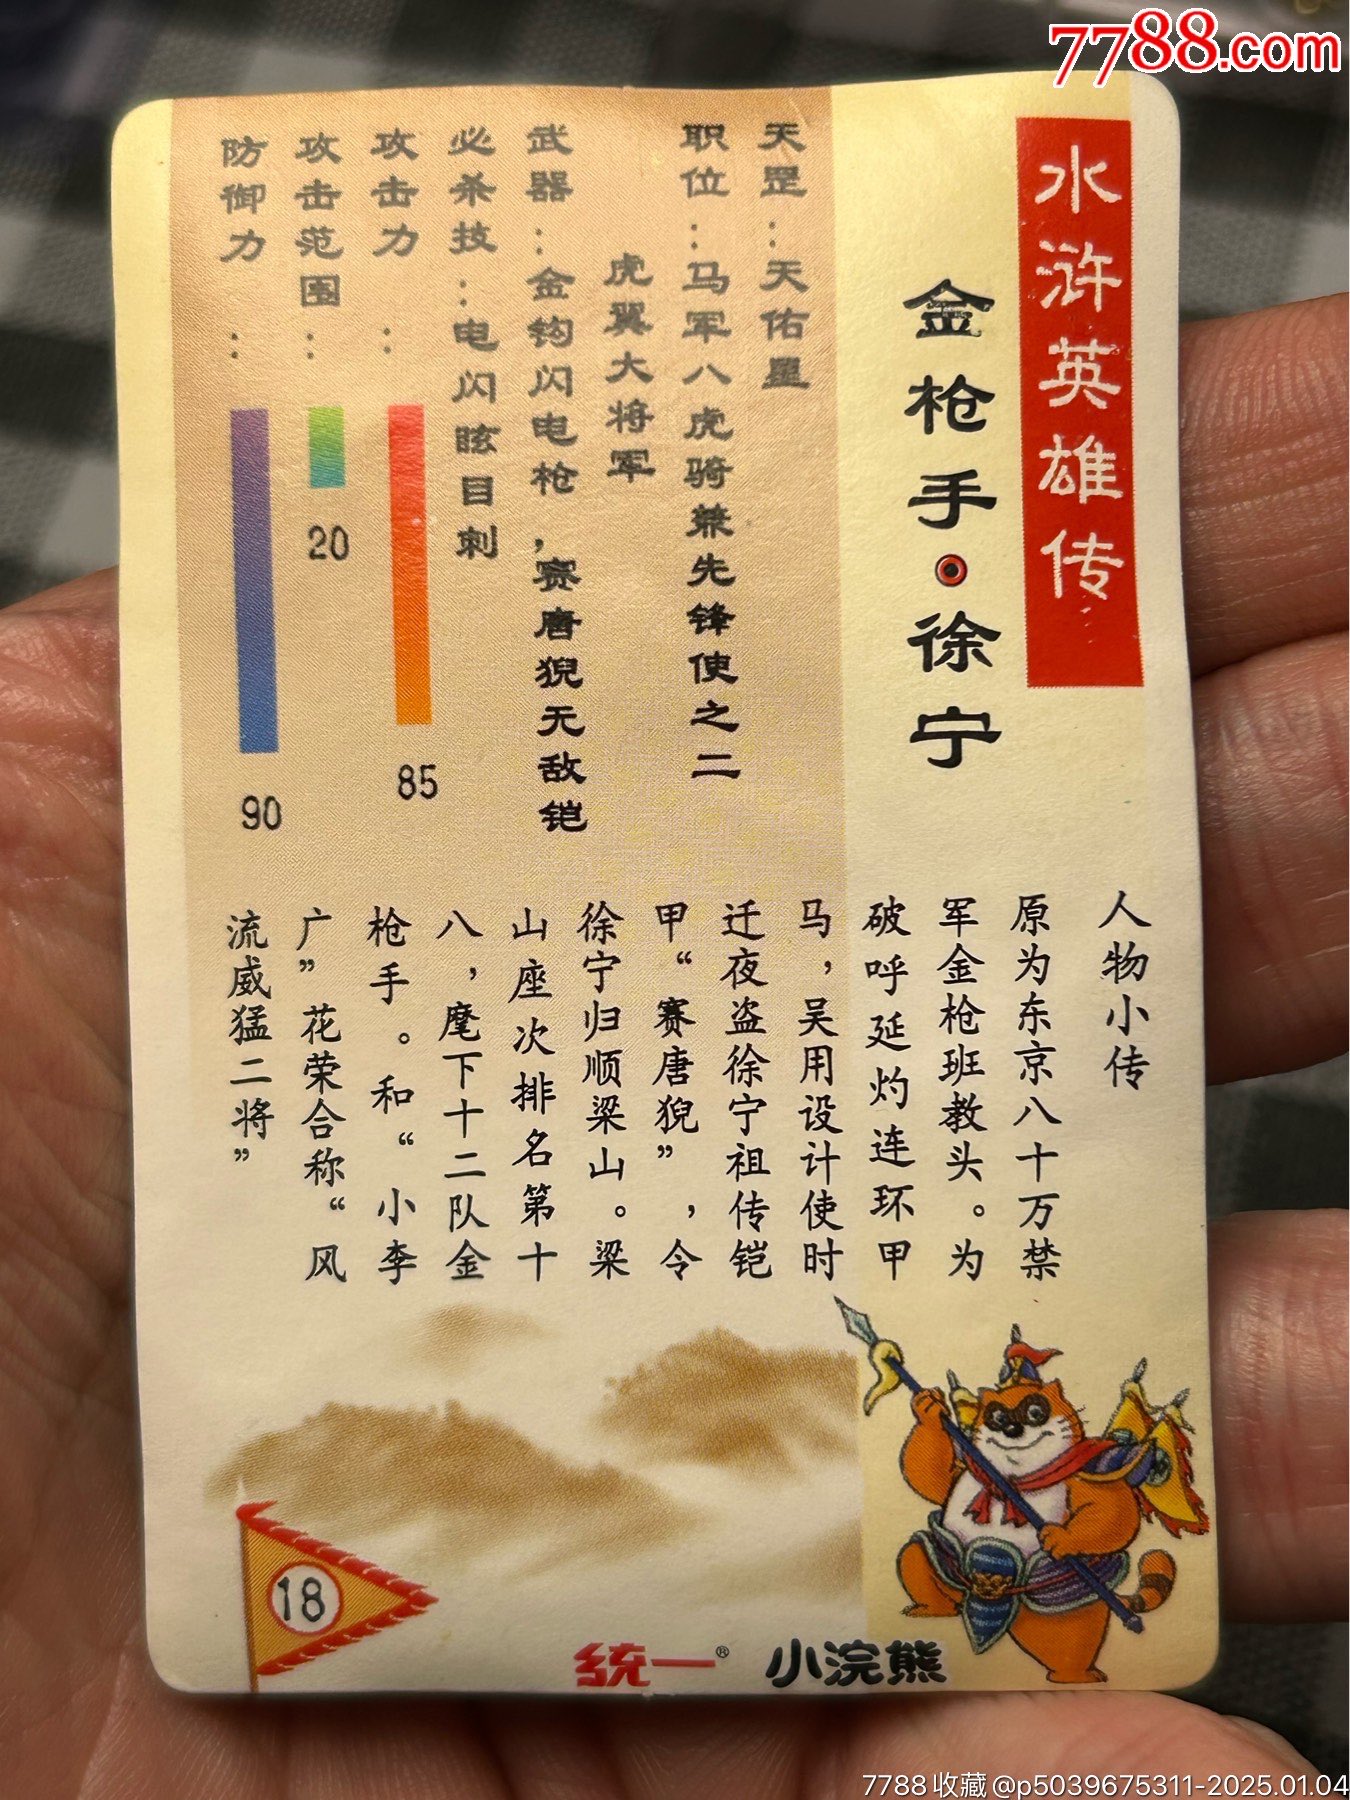 7788.com
水浒英雄传
金枪手·徐宁
天罡：天佑星
职位：马军八虎骑兼先锋使之二
虎翼大将军
武器：金钩闪电枪，赛唐猊无敌铠
必杀技：电闪眩目刺
攻击力：
85
攻击范围：
20
防御力：
90
人物小传
原为东京八十万禁
军金枪班教头。为
破呼延灼连环甲
马，吴用设计使时
迁夜盗徐宁祖传铠
甲“赛唐猊”，令
徐宁归顺梁山。梁
山座次排名第十
八，麾下十二队金
枪手。和“小李
广”花荣合称“风
流威猛二将”
18
统一® 小浣熊
7788收藏@p5039675311-2025.01.04